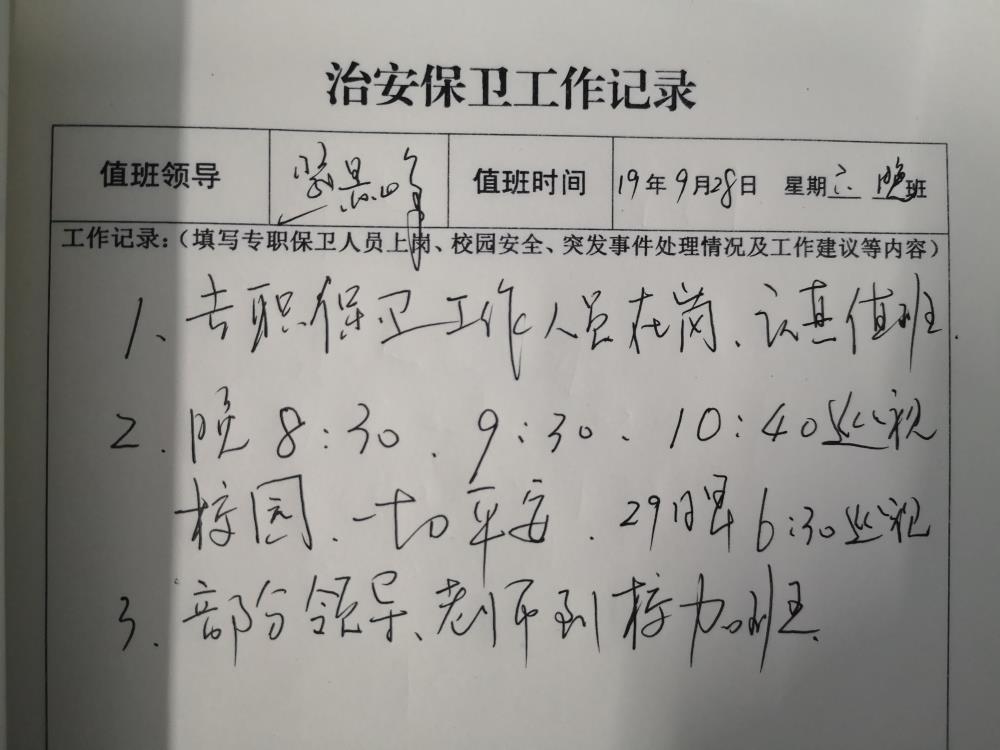 治安保卫工作记录
值班领导 值班时间 19年9月28日 星期六 晚班
工作记录：（填写专职保卫人员上岗、校园安全、突发事件处理情况及工作建议等内容）
1、专职保卫工作人员在岗、认真值班.
2.晚8:30、9:30、10:40巡视
校园、一切平安.29日早6:30巡视
3.部分领导、老师到校加班.